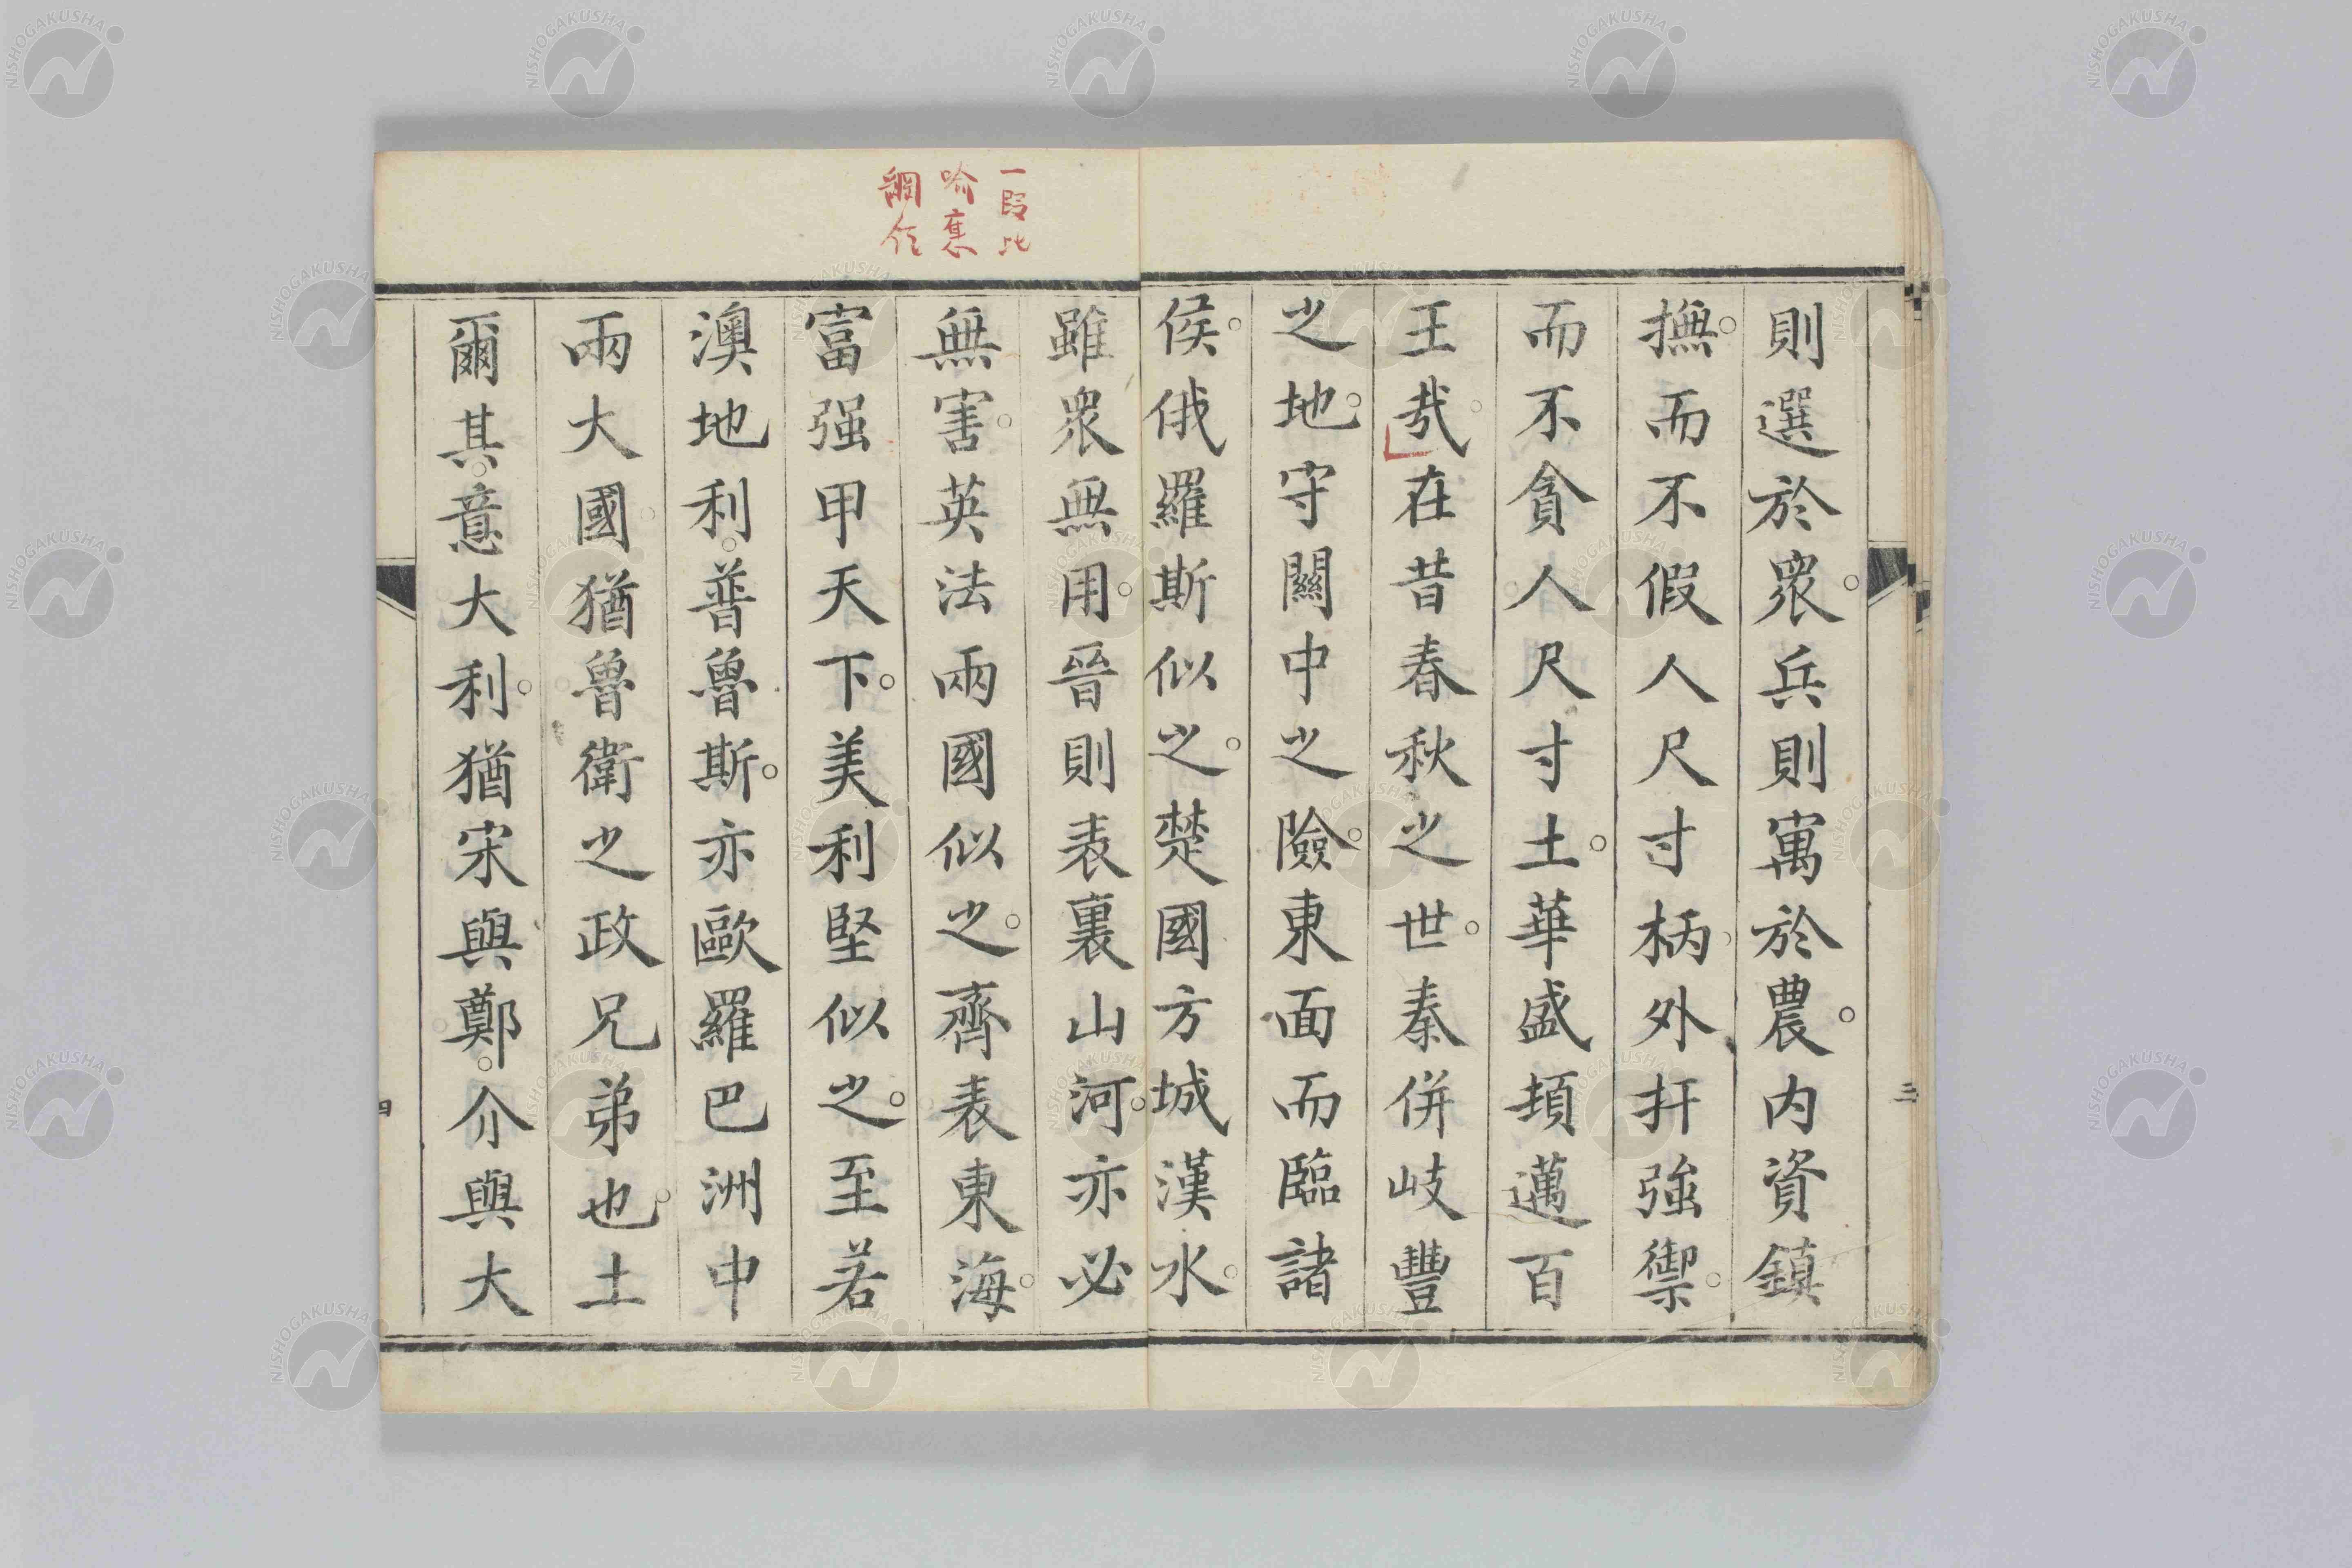 三
則選於衆。兵則寓於農。内資鎮
撫。而不假人尺寸柄。外扞強禦。
而不貪人尺寸土。華盛頓邁百
王哉。在昔春秋之世。秦併岐豐
之地。守關中之險。東面而臨諸
侯。俄羅斯似之。楚國方城漢水。
一段比
喻
雖衆無用。晉則表裏山河。亦必
無害。英法兩國似之。齊表東海。
富强甲天下。美利堅似之。至若
澳地利。普魯斯。亦歐羅巴洲中
兩大國。猶魯衛之政兄弟也。土
爾其。意大利。猶宋與鄭。介與大
四
NISHOGAKUSHA